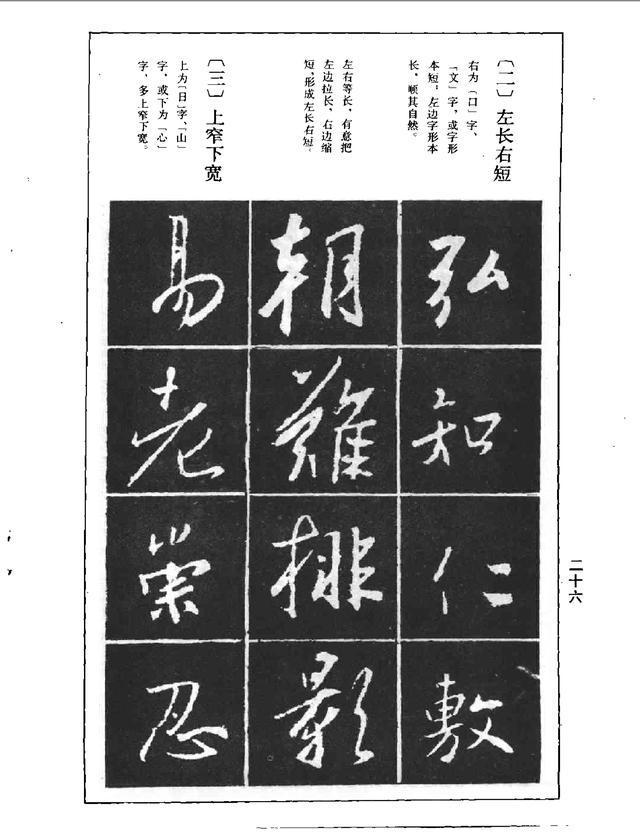 〔二〕左长右短
右为〔口〕字、
「文」字，或字形
本短，左边字形本
长，顺其自然。
左右等长、有意把
左边拉长、右边缩
短，形成左长右短。
〔三〕上窄下宽
上为〔日〕字、「山」
字，或下为「心」
字，多上窄下宽。
弘知仁敷
朝難排影
易老崇忍
二十六